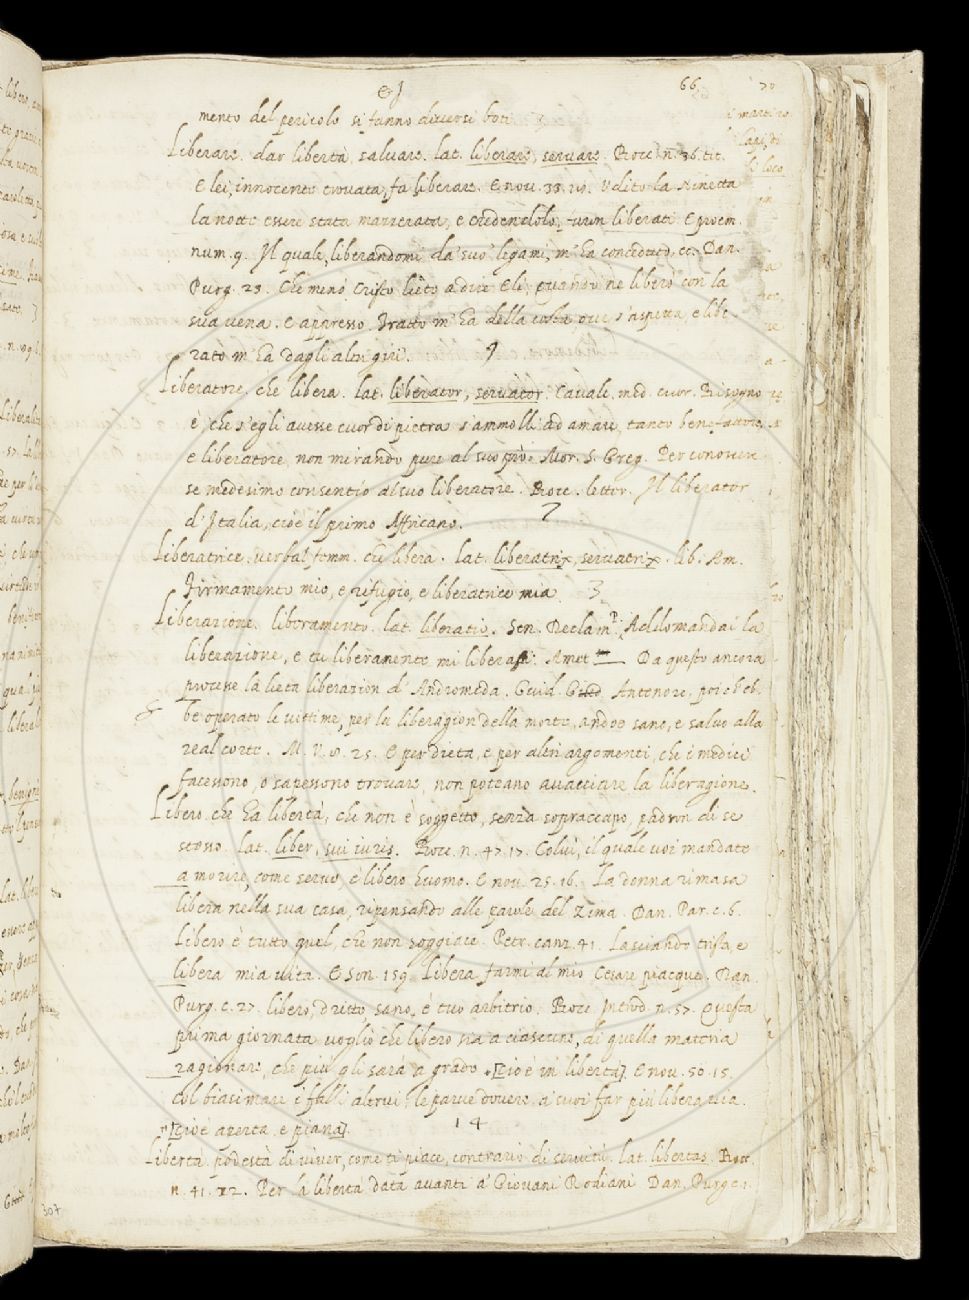 66
mento del pericolo si fanno diversi boti
Liberare. dar libertà, salvare. lat. liberare, servare. Bocc. n. 36. tit.
E lei, innocente trovata, fa liberare. E nov. Udito la Ninetta
la notte essere stata mazzerata, e credendolo, furon liberati. E proem.
num. 9. Il quale, liberandomi da suo' legami, m'ha conceduto, ec. Dan.
Purg. 23. Che menò Cristo lieto a dire Elì, quando ne liberò con la
sua vena. E appresso. Tratto m'ha della costa ove s'aspetta, e libe-
rato m'ha dagli altri giri.
Liberatore. che libera. lat. liberator, servator. Cavalc. med. cuor. Bisogno
è, che s'egli avesse cuor di pietra s'ammolli ad amare, tanto benefattore,
e liberatore, non mirando pure al suo prò. Mor. S. Greg. Per conoscere
se medesimo consentìo al suo liberatore. Bocc. letter. Il liberator
d'Italia, cioè il primo Affricano. 2
Liberatrice. verbal femm. che libera. lat. liberatrix, servatrix. lib. Am.
Firmamento mio, e rifugio, e liberatrice mia. 3
Liberazione. liberamento. lat. liberatio. Sen. Declam. Addomandai la
liberazione, e tu liberamente mi libera. Amet. Da questo ancora
processe la lieta liberazion d'Andromeda. Guid. G. Antenore, poich'eb-
be operato le vittime, per la liberagion della morte, andoe sano, e salvo alla
real corte. M. V. 25. E per dieta, e per altri argomenti, che i medici
facessono, o sapessono trovare, non poteano avacciare la liberagione.
Libero. che ha libertà, che non è soggetto, senza sopraccapo, padron di se
stesso. lat. liber, sui iuris. Bocc. n. 47. 17. Colui, il quale voi mandate
a morire, come servo, è libero huomo. E nov. 25. 16. La donna rimasa
libera nella sua casa, ripensando alle parole del Zima. Dan. Par. c. 6.
Libero è tutto quel, che non soggiace. Petr. canz. 41. Lasciando trista, e
libera mia vita. E Son. 159. Libera farmi al mio Cesare piacque. Dan.
Purg. c. 27. libero, dritto, sano, è tuo arbitrio. Bocc. Introd. n. 57. Questa
prima giornata voglio che libero sia a ciascuno, di quella materia
ragionare, che più gli sarà a grado [cioè in libertà]. E nov. 50. 15.
Col biasimare i falli altrui le parve dovere a' suoi far più libera via.
[cioè aperta, e piana]. 14
Libertà. podestà di viver, come ti piace, contrario di servitù. lat. libertas. Bocc.
n. 41. 22. Per la libertà data avanti a' Giovani Rodiani. Dan. Purg. c. 1.
307